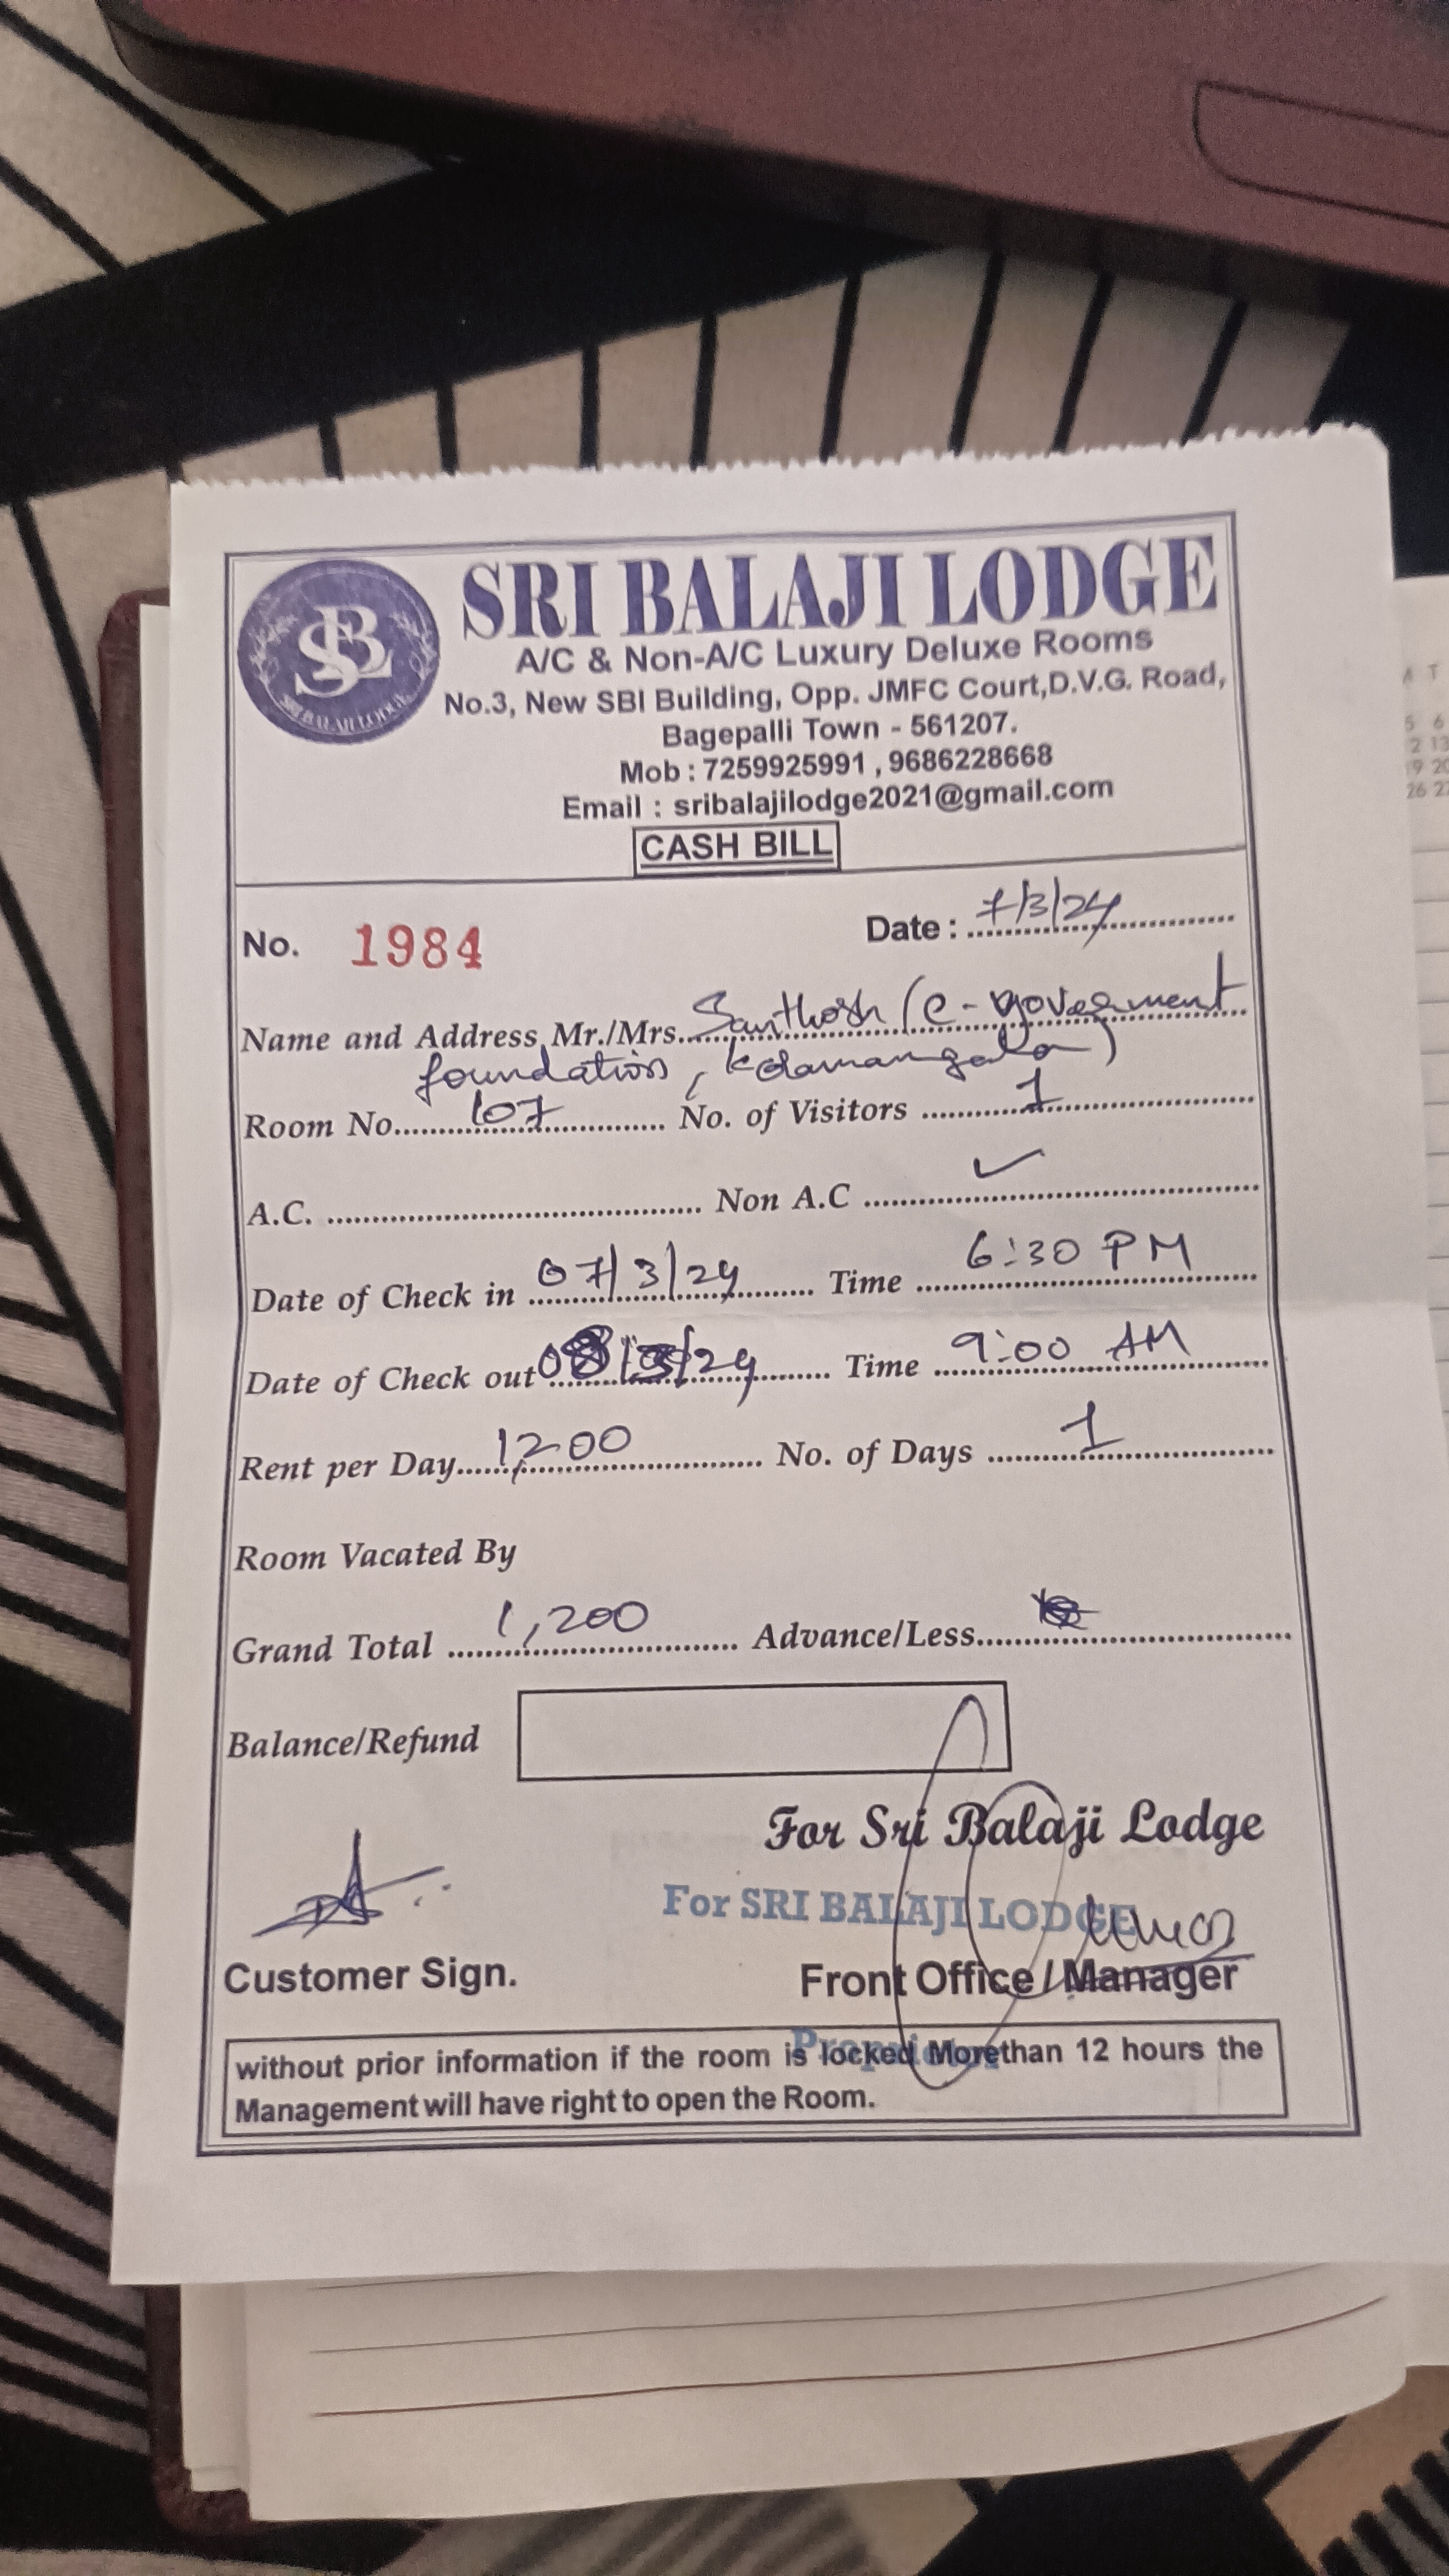 SBL
SRI BALAJI LODGE
SRI BALAJI LODGE
A/C & Non-A/C Luxury Deluxe Rooms
No.3, New SBI Building, Opp. JMFC Court,D.V.G. Road,
Bagepalli Town - 561207.
Mob : 7259925991 , 9686228668
Email : sribalajilodge2021@gmail.com
CASH BILL
No. 1984 Date : 7/3/24
Name and Address Mr./Mrs. Santhosh (e-government
foundation, Kolamangala)
Room No. 107 No. of Visitors 1
A.C. Non A.C ✓
Date of Check in 07/3/24 Time 6:30 PM
Date of Check out 08/3/24 Time 9:00 AM
Rent per Day 1,200 No. of Days 1
Room Vacated By
Grand Total 1,200 Advance/Less
Balance/Refund
For Sri Balaji Lodge
For SRI BALAJI LODGE
Customer Sign. Front Office / Manager
Proprietor
without prior information if the room is locked Morethan 12 hours the
Management will have right to open the Room.